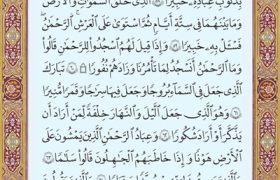 بِذُنُوبِ عِبَادِهِۦ خَبِيرًا ۝ ٱلَّذِى خَلَقَ ٱلسَّمَٰوَٰتِ وَٱلْأَرْضَ
وَمَا بَيْنَهُمَا فِى سِتَّةِ أَيَّامٍ ثُمَّ ٱسْتَوَىٰ عَلَى ٱلْعَرْشِ ٱلرَّحْمَٰنُ
فَسْـَٔلْ بِهِۦ خَبِيرًا ۝ وَإِذَا قِيلَ لَهُمُ ٱسْجُدُوا۟ لِلرَّحْمَٰنِ قَالُوا۟
وَمَا ٱلرَّحْمَٰنُ أَنَسْجُدُ لِمَا تَأْمُرُنَا وَزَادَهُمْ نُفُورًا ۝ تَبَارَكَ
ٱلَّذِى جَعَلَ فِى ٱلسَّمَآءِ بُرُوجًا وَجَعَلَ فِيهَا سِرَٰجًا وَقَمَرًا مُّنِيرًا
۝ وَهُوَ ٱلَّذِى جَعَلَ ٱلَّيْلَ وَٱلنَّهَارَ خِلْفَةً لِّمَنْ أَرَادَ أَن
يَذَّكَّرَ أَوْ أَرَادَ شُكُورًا ۝ وَعِبَادُ ٱلرَّحْمَٰنِ ٱلَّذِينَ يَمْشُونَ عَلَى
ٱلْأَرْضِ هَوْنًا وَإِذَا خَاطَبَهُمُ ٱلْجَٰهِلُونَ قَالُوا۟ سَلَٰمًا ۝